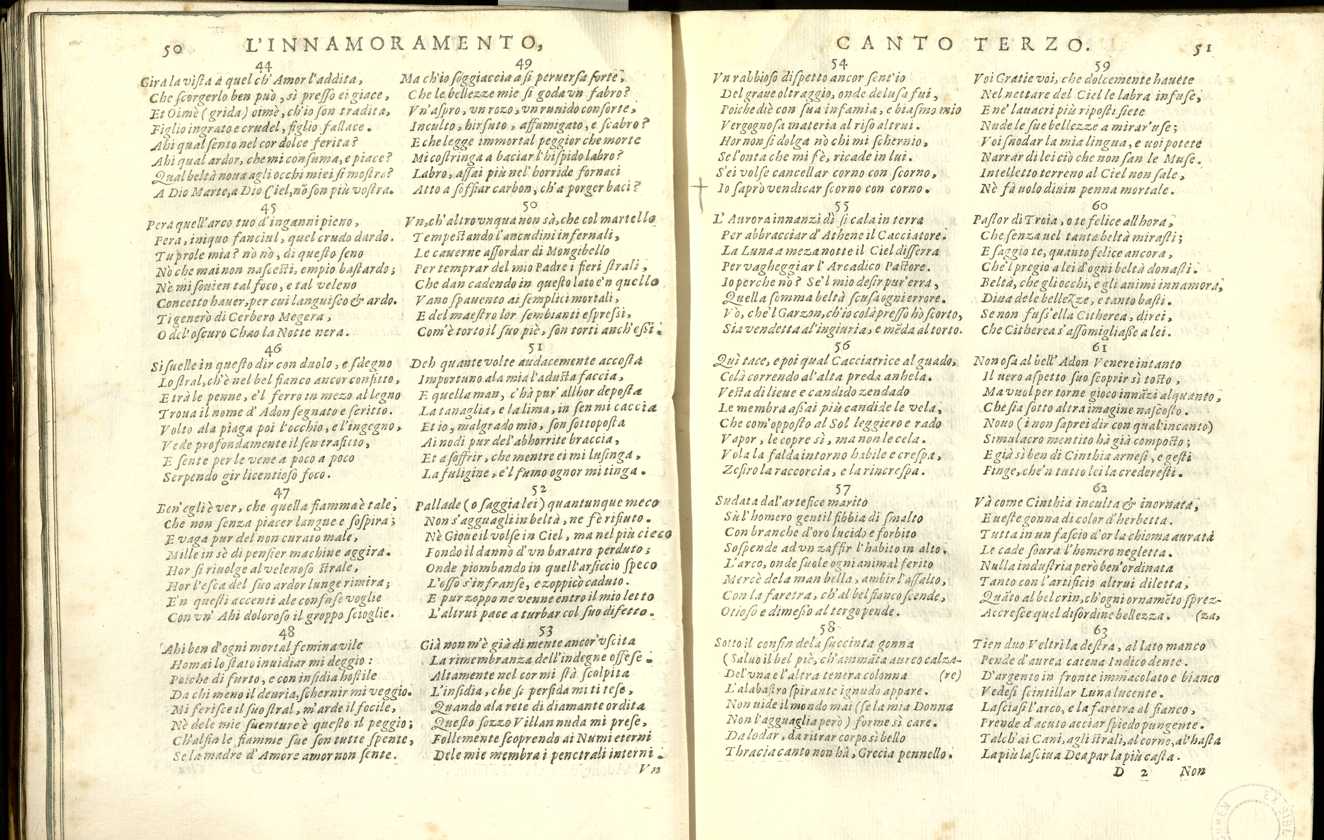 50 L'INNAMORAMENTO,
44
Gira la vista a quel ch'Amor l'addita,
Che scorgerlo ben può, sì presso ei giace,
Et Oimè (grida) oimè, ch'io son tradita,
Figlio ingrato e crudel, figlio fallace.
Ahi qual sento nel cor dolce ferita?
Ahi qual ardor, che mi consuma, e piace?
Qual beltà noua agli occhi miei si mostra?
A Dio Marte, a Dio Ciel, nō son più vostra.
45
Pera quell'arco tuo d'inganni pieno,
Pera, iniquo fanciul, quel crudo dardo.
Tu prole mia? nò nò, di questo seno
Nò che mai non nascesti, empio bastardo;
Nè mi souien tal foco, e tal veleno
Concetto hauer, per cui languisco & ardo.
Ti generò di Cerbero Megera,
O del'oscuro Chao la Notte nera.
46
Si suelle in questo dir con duolo, e sdegno
Lo stral, ch'è nel bel fianco ancor confitto,
E trà le penne, e'l ferro in mezo al legno
Troua il nome d'Adon segnato e scritto.
Volto ala piaga poi l'occhio, e l'ingegno,
Vede profondamente il sen trafitto,
E sente per le vene a poco a poco
Serpendo gir licentioso foco.
47
Ben'egli è ver, che quella fiamma è tale,
Che non senza piacer langue e sospira;
E vaga pur del non curato male,
Mille in sè di pensier machine aggira.
Hor si riuolge al velenoso strale,
Hor l'esca del suo ardor lunge rimira;
E'n questi accenti ale confuse voglie
Con vn' Ahi doloroso il groppo scioglie.
48
Ahi ben d'ogni mortal femina vile
Homai lo stato inuidiar mi deggio:
Poiche di furto, e con insidia hostile
Da chi meno il deuria, schernir mi veggio.
Mi ferisce il suo stral, m'arde il focile,
Nè dele mie suenture è questo il peggio;
Ch'alfin le fiamme sue son tutte spente,
Se la madre d'Amore amor non sente.
49
Ma ch'io soggiaccia a sì peruersa sorte,
Che le bellezze mie si goda vn fabro?
Vn'aspro, vn rozo, vn ruuido consorte,
Inculto, hirsuto, affumigato, e scabro?
E che legge immortal peggior che morte
Mi costringa a baciar l'hispido labro?
Labro, assai più nel'horride fornaci
Atto a soffiar carbon, ch'a porger baci?
50
Vn, ch'altro vnqua non sà, che col martello
Tempestando l'ancudini infernali,
Le cauerne assordar di Mongibello
Per temprar del mio Padre i fieri strali,
Che dan cadendo in questo lato e'n quello
Vano spauento ai semplici mortali,
E del maestro lor sembianti espressi,
Com'è torto il suo piè, son torti anch'essi.
51
Deh quante volte audacemente accosta
Importuno ala mia l'adusta faccia,
E quella man, c'hà pur'allhor deposta
La tanaglia, e la lima, in sen mi caccia
Et io, malgrado mio, son sottoposta
Ai nodi pur del'abhorrite braccia,
Et a soffrir, che mentre ei mi lusinga,
La fuligine, e'l fumo ognor mi tinga.
52
Pallade (o saggia lei) quantunque meco
Non s'agguagli in beltà, ne fè rifiuto.
Nè Gioue il volse in Ciel, ma nel più cieco
Fondo il dannò d'vn baratro perduto;
Onde piombando in quell'arsiccio speco
L'osso s'infranse, e zoppicò caduto.
E pur zoppo ne venne entro il mio letto
L'altrui pace a turbar col suo difetto.
53
Già non m'è già di mente ancor'vscita
La rimembranza dell'indegne offese.
Altamente nel cor mi stà scolpita
L'insidia, che sì perfida mi tese,
Quando ala rete di diamante ordita
Questo sozzo Villan nuda mi prese,
Follemente scoprendo ai Numi eterni
Dele mie membra i penetrali interni.
Vn
CANTO TERZO. 51
54
Vn rabbioso dispetto ancor sent'io
Del graue oltraggio, onde delusa fui,
Poiche diè con sua infamia, e biasmo mio
Vergognosa materia al riso altrui.
Hor non si dolga nò chi mi schernio,
Se l'onta che mi fè, ricade in lui.
S'ei volse cancellar corno con scorno,
Io saprò vendicar scorno con corno.
55
L'Aurora innanzi dì si cala in terra
Per abbracciar d'Athene il Cacciatore.
La Luna a meza notte il Ciel disserra
Per vagheggiar l'Arcadico Pastore.
Io perche nò? Se'l mio desir pur'erra,
Quella somma beltà scusa ogni errore.
Vò, che'l Garzon, ch'io colà presso hò scorto,
Sia vendetta al'ingiuria, e mēda al torto.
56
Quì tace, e poi qual Cacciatrice al guado,
Celà correndo al'alta preda anhela.
Vesta di lieue e candido zendado
Le membra assai più candide le vela,
Che com'opposto al Sol leggiero e rado
Vapor, le copre sì, ma non le cela.
Vola la falda intorno habile e crespa,
Zefiro la raccorcia, e la rincrespa.
57
Sudata dal'artefice marito
Sù l'homero gentil fibbia di smalto
Con branche d'oro lucido e forbito
Sospende ad vn zaffir l'habito in alto.
L'arco, onde suole ogni animal ferito
Mercè de la man bella, ambir l'assalto,
Con la faretra, ch'al bel fianco scende,
Otioso e dimesso al tergo pende.
58
Sotto il confin dela succinta gonna
(Saluo il bel piè, ch'ammāta aureo calza-
Del'vna e l'altra tenera colonna (re)
L'alabastro spirante ignudo appare.
Non vide il mondo mai (se la mia Donna
Non l'agguaglia però) forme sì care.
Da lodar, da ritrar corpo sì bello
Thracia canto non hà, Grecia pennello.
59
Voi Gratie voi, che dolcemente hauete
Nel nettare del Ciel le labra infuse,
E ne' lauacri più riposti siete
Nude le sue bellezze a mirar'vse;
Voi snodar la mia lingua, e voi potete
Narrar di lei ciò che non san le Muse.
Intelletto terreno al Ciel non sale,
Nè fà volo diuin penna mortale.
60
Pastor di Troia, o te felice allhora,
Che senza vel tanta beltà mirasti;
E saggio te, quanto felice ancora,
Che'l pregio a lei d'ogni beltà donasti.
Beltà, che gli occhi, e gli animi innamora,
Diua dele bellezze, e tanto basti.
Se non fuss'ella Citherea, direi,
Che Citherea s'assomigliasse a lei.
61
Non osa al bell'Adon Venere intanto
Il vero aspetto suo scoprir sì tosto,
Ma vuol per torne gioco innāzi alquanto,
Che sia sotto altra imagine nascosto.
Nouo (i non saprei dir con qual'incanto)
Simulacro mentito hà già composto;
E già sì ben di Cinthia arnesi, e gesti
Finge, che'n tutto lei la crederesti.
62
Và come Cinthia inculta & inornata,
E veste gonna di color d'herbetta.
Tutta in vn fascio d'or la chioma aurata
Le cade soura l'homero negletta.
Nulla industria però ben'ordinata
Tanto con l'artificio altrui diletta,
Quāto al bel crin, ch'ogni ornamēto sprez-
Accresce quel disordine bellezza. (za,
63
Tien duo Veltri la destra, al lato manco
Pende d'aurea catena Indico dente.
D'argento in fronte immacolato e bianco
Vedesi scintillar Luna lucente.
Lascia sì l'arco, e la faretra al fianco,
Prende d'acuto acciar spiedo pungente.
Talch'ai Cani, agli strali, al corno, al'hasta
La più lasciua Dea par la più casta.
D 2 Non